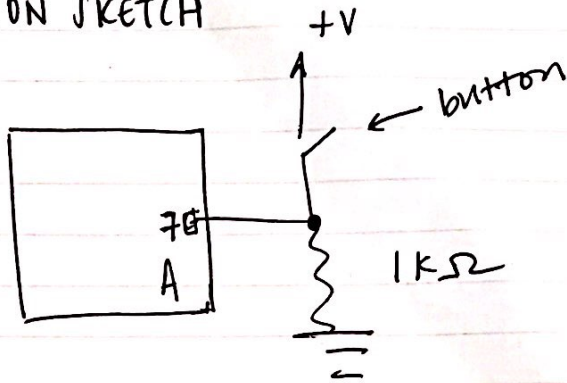 ON SKETCH
+V
button
7
A
1KΩ